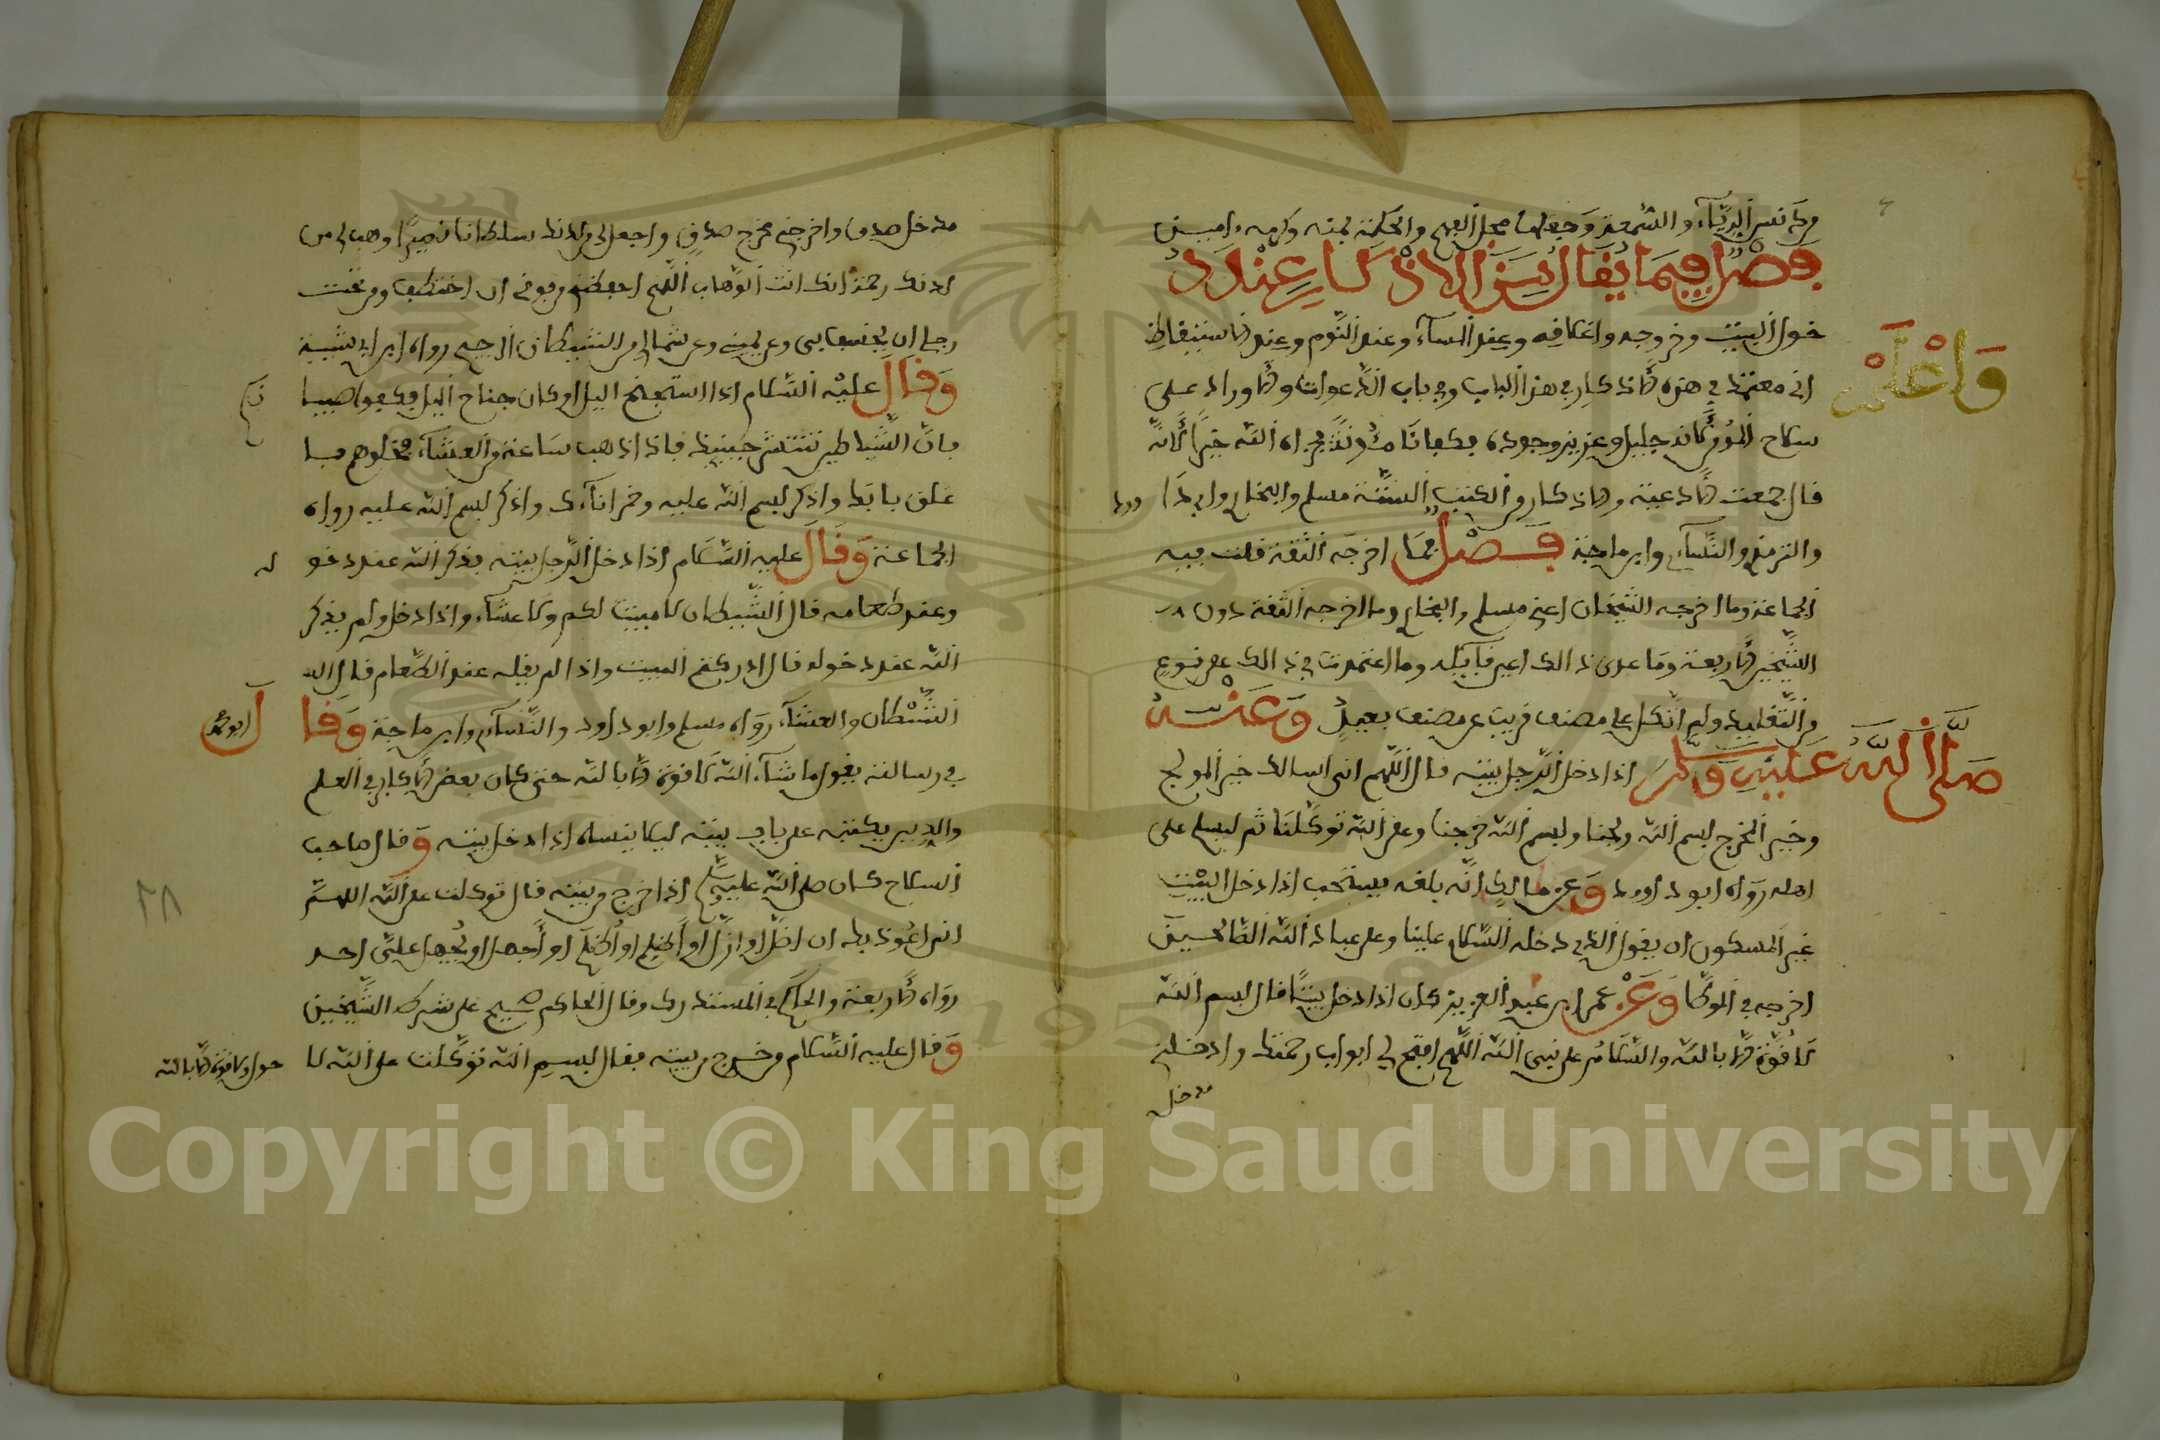 من دنس الرياء والسمعة وجعلها محل الفهم والحكمة بمنه وكرمه ءامين
فصل فيما يقال من الاذكار عند د
خول البيت وخروجه واغلافه وعند المساء وعند النوم وعند الاستيقاظ
واعلم
اني معتمد في هذه الاذكار في هذا الباب وفي باب الدعوات والاوراد على
سلاح المومن لانه جليل وعزيز وجوده فكفانا مئونته جزاه الله خيرا لانه
قال جمعت الادعية والاذكار من الكتب الستة مسلم والبخاري وابي دا
وود
والترمذي والنساءي وابن ماجة فصل فما اخرجه الستة قلت فيه
الجماعة وما اخرجه الشيخان اعني مسلم والبخاري وما اخرجه الستة دون
الشيخين الاربعة وما عدى ذالك اعين قائله وما اعتمدت في ذالك على نوع
من التقليد ولم اتكل على مصنف قريب عن مصنف بعيد وعنه
صلى الله عليه وسلم اذا دخل الرجل بيته قال اللهم اني اسالك خير المولج
وخير المخرج بسم الله ولجنا وبسم الله خرجنا وعلى الله توكلنا ثم ليسلم على
اهله رواه ابو داوود وعن مالك انه بلغه يستحب اذا دخل البيت
غير المسكون ان يقول الذي دخله السلام علينا وعلى عباد الله الصالحين
اخرجه في الموطا وعن عمر ابن عبد العزيز كان اذا دخل بيتا قال بسم الله
لا قوة الا بالله والسلام على نبي الله اللهم افتح لي ابواب رحمتك وادخلني
مدخل
مدخل صدق واخرجني مخرج صدق واجعل لي من لدنك سلطانا نصيرا وهب لي من
لدنك رحمة انك انت الوهاب اللهم احفظني من فوقي ان اختطف ومن تحت
رجلي ان يخسف بي وعن يميني وعن شمالي من الشيطان الرجيم رواه ابن ابي شيبة
وقال عليه السلام اذا استجنح اليل او كان جناح اليل فكفوا صبيا
نكم
فان الشياطين تنتشر حينيذ فاذا ذهب ساعة من العشاء فخلوهم وا
غلق بابك واذكر بسم الله عليه وخمر اناءك واذكر بسم الله عليه رواه
الجماعة وقال عليه السلام اذا دخل الرجل بيته يذكر الله عند دخو
له
وعند طعامه قال الشيطان لا مبيت لكم ولا عشاء واذا دخل ولم يذكر
الله عند دخوله قال ادركتم المبيت واذا لم يقله عند الطعام قال
الشيطان والعشاء رواه مسلم وابو داود والنساءي وابن ماجة وقا
ل ابو محمد
في رسالته يقول ما شاء الله لا قوة الا بالله حتى كان بعض الاكابر في العلم
والدين يكتبه على باب بيته ليلا ينساه اذا دخل بيته وقال صاحب
السلاح كان صلى الله عليه وسلم اذا خرج من بيته قال توكلت على الله اللهم
اني اعوذ بك ان اضل او ازل او اظلم او اظلم او اجهل او يجهل علي احد
رواه الاربعة والحاكم في المستدرك وقال الحاكم صحيح على شرط الشيخين
وقال عليه السلام من خرج من بيته فقال بسم الله توكلت على الله لا
حول ولا قوة الا بالله
٢٨
Copyright © King Saud University
1957